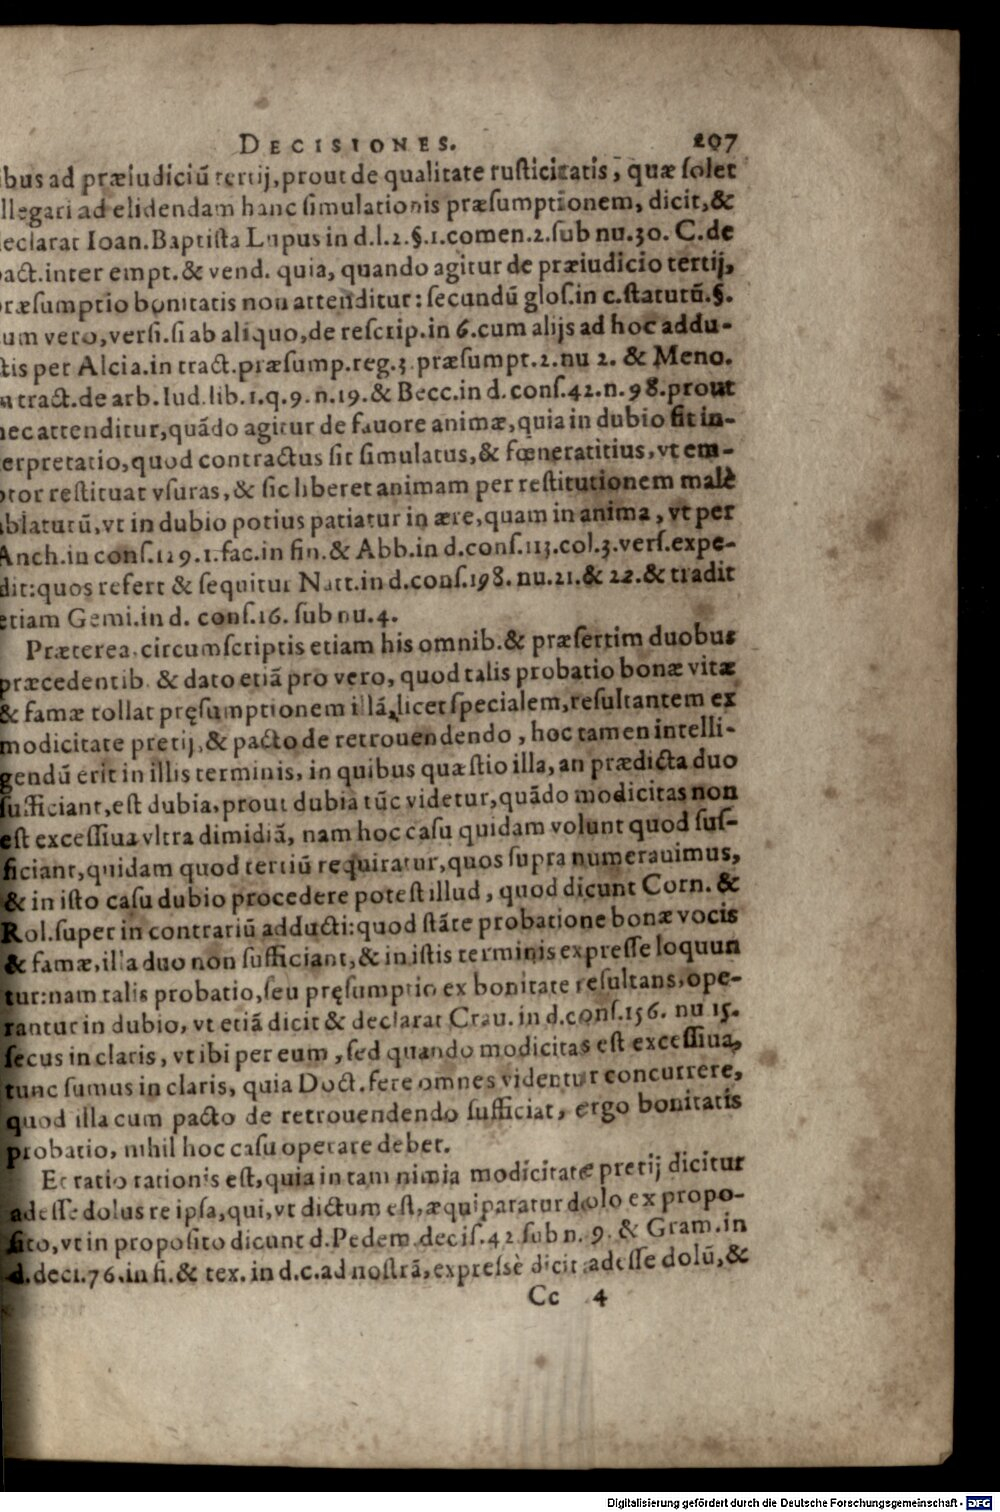 DECISIONES. 207
ibus ad præiudiciũ tertij, prout de qualitate rusticitatis, quæ solet
llegari ad elidendam hanc simulationis præsumptionem, dicit, &
declarat Ioan. Baptista Lupus in d.l.2.§.1.comen.2. sub nu.30. C. de
pact. inter empt. & vend. quia, quando agitur de præiudicio tertij,
præsumptio bonitatis non attenditur: secundũ glos. in c. statutũ.§.
um vero, versi. si ab aliquo, de rescrip. in 6. cum alijs ad hoc addu-
ctis per Alcia. in tract. præsump. reg.3. præsumpt.2. nu 2. & Meno.
in tract. de arb. Iud. lib.1.q.9.n.19. & Becc. in d. cons.42.n.98. prout
nec attenditur, quãdo agitur de fauore animæ, quia in dubio fit in-
terpretatio, quod contractus sit simulatus, & fœneratitius, vt em-
ptor restituat vsuras, & sic liberet animam per restitutionem malè
ablatarũ, vt in dubio potius patiatur in ære, quam in anima, vt per
Anch. in cons.129.1. fac. in fin. & Abb. in d. cons.113. col.3. vers. expe-
dit: quos refert & sequitur Natt. in d. cons.198. nu.21. & 22. & tradit
etiam Gemi. in d. cons.16. sub nu.4.
Præterea circumscriptis etiam his omnib. & præsertim duobus
præcedentib. & dato etiã pro vero, quod talis probatio bonæ vitæ
& famæ tollat pręsumptionem illã, licet specialem, resultantem ex
modicitate pretij, & pacto de retrouendendo, hoc tamen intelli-
gendũ erit in illis terminis, in quibus quæstio illa, an prædicta duo
sufficiant, est dubia, prout dubia tũc videtur, quãdo modicitas non
est excessiua vltra dimidiã, nam hoc casu quidam volunt quod suf-
ficiant, quidam quod tertiũ requiratur, quos supra numerauimus,
& in isto casu dubio procedere potest illud, quod dicunt Corn. &
Rol. super in contrariũ adducti: quod stãte probatione bonæ vocis
& famæ, illa duo non sufficiant, & in istis terminis expresse loquun
tur: nam talis probatio, seu pręsumptio ex bonitate resultans, ope-
rantur in dubio, vt etiã dicit & declarat Crau. in d. cons.156. nu 15.
secus in claris, vt ibi per eum, sed quando modicitas est excessiua,
tunc sumus in claris, quia Doct. fere omnes videntur concurrere,
quod illa cum pacto de retrouendendo sufficiat, ergo bonitatis
probatio, nihil hoc casu operare debet.
Et ratio rationis est, quia in tam nimia modicitate pretij dicitur
adesse dolus re ipsa, qui, vt dictum est, æquiparatur dolo ex propo-
sito, vt in proposito dicunt d. Pedem. decis.42 sub n.9. & Gram. in
d. deci.76. in fi. & tex. in d.c. ad nostrã, expressè dicit adesse dolũ, &
Cc 4
Digitalisierung gefördert durch die Deutsche Forschungsgemeinschaft - DFG